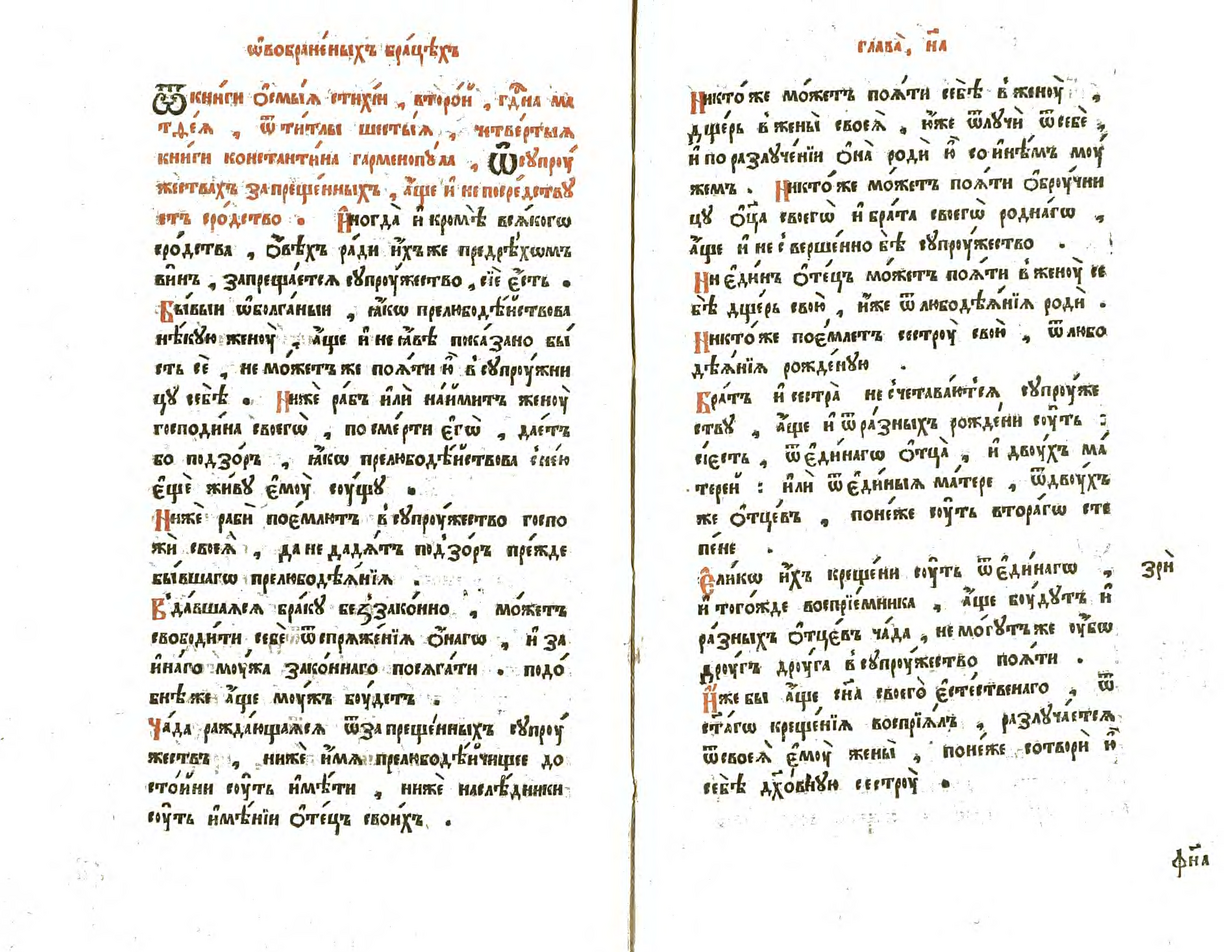 ѡ҆возбране́ныхъ бра́цѣхъ
Ѿ кни́ги ѻ҆смы́ѧ стихі́и , второ́й , гдⷭ҇и́на ма
тѳе́ѧ , ѿ ти́тлы шесты́ѧ , четве́ртыѧ
кни́ги константи́на гарменопꙋ́ла , Ѿ сꙋпроꙋ́
жествахъ запреще́нныхъ , а҆́ще и҆ непосре́дствꙋ
етъ сро́дство . И҆ногда̀ и҆ кромѣ̀ всѧ́когѡ
сро́дства , ѻ҆вѣ́хъ ра́ди и҆́хъже предреко́хомъ
ви́нъ , запреща́етсѧ сꙋпроꙋ́жество , сїѐ є҆́сть .
Бы́выи ѡ҆болга́ныи , ꙗ҆́кѡ прелюбодѣ́йствова
нѣ́кꙋю женоꙋ̀ , а҆́ще и҆ не ꙗ҆́вѣ пока́зано бы́
сть сѐ , не мо́жетъ же поѧ́ти ю҆̀ в сꙋпроꙋ́жни
цꙋ себѣ̀ . Нижѐ ра́бъ и҆лѝ наи́митъ женоꙋ̀
господи́на своегѡ̀ , по сме́рти є҆гѡ̀ , дае́тъ
бо подзо́ръ , ꙗ҆́кѡ прелюбодѣ́йствова с не́ю
є҆щѐ жи́вꙋ є҆моꙋ̀ соꙋ́щꙋ .
Нижѐ рабѝ пое́млютъ в сꙋпроꙋ́жество госпо
жѝ своеѧ̀ , да не дадѧ́тъ подзо́ръ пре́жде
бы́вшагѡ прелюбодѣѧ́нїѧ .
Вда́вшаѧсѧ бра́кꙋ беззако́нно , мо́жетъ
свободи́ти себѐ ѿ спрѧже́нїѧ ѻ҆́нагѡ , и҆ за
и҆на́го моꙋ́жа зако́ннаго посѧга́ти . подо́
бнѣ же а҆́ще моꙋ́жъ боꙋ́детъ .
Ча́да ражда́ющаѧсѧ ѿ запреще́нныхъ сꙋпроꙋ́
жествъ , нижѐ и҆́мѧ прелюбодѣ́йчищее до
сто́йни соꙋ́ть и҆мѣ́ти , нижѐ наслѣ́дники
соꙋ́ть и҆мѣ́нїи ѻ҆те́цъ свои́хъ .
глава̀ , н҃а
Никто́ же мо́жетъ поѧ́ти себѣ̀ в женоꙋ̀ ,
дще́рь в жены̀ своеѧ̀ , ю҆́же ѿлꙋчѝ ѿ себѐ ,
и҆ по разлꙋче́нїи ѻ҆на̀ родѝ ю҆̀ со и҆нѣ́мъ моꙋ́
жемъ . Никто́ же мо́жетъ поѧ́ти ѻ҆брꙋ́чни
цꙋ ѻ҆ц҃а̀ своегѡ̀ и҆ бра́та своегѡ̀ ро́днагѡ ,
а҆́ще и҆ не с вершенно бѣ̀ сꙋпроꙋ́жество .
Ни є҆ди́нъ ѻ҆те́цъ мо́жетъ поѧ́ти в женоꙋ̀ се
бѣ̀ дще́рь свою̀ , ю҆́же ѿ любодѣѧ́нїѧ родѝ .
Никто́ же пое́млетъ сестроꙋ̀ свою̀ , ѿ любо
дѣѧ́нїѧ рожде́нꙋю .
Бра́тъ и҆ сестра̀ не счетава́ютсѧ сꙋпроꙋ́же
ствꙋ , а҆́ще и҆ ѿ ра́зныхъ рожде́ни соꙋ́ть :
сїе́сть , ѿ є҆ди́нагѡ ѻ҆тца̀ , и҆ двоꙋ́хъ ма́
терей : и҆лѝ ѿ є҆ди́ныѧ ма́тере , ѿ двоꙋ́хъ
же ѻ҆тце́въ , поне́же соꙋ́ть втора́гѡ сте́
пене .
Є҆ли́кѡ и҆́хъ креще́ни соꙋ́ть ѿ є҆ди́нагѡ ,
зрѝ
и҆ того́жде воспрїе́мника , а҆́ще боꙋ́дꙋтъ и҆
ра́зныхъ ѻ҆тце́въ ча́да , не мо́гꙋтъ же ᲂу҆́бѡ
дроꙋ́гъ дроꙋ́га в сꙋпроꙋ́жество поѧ́ти .
И҆́же бы а҆́ще сн҃а своего̀ є҆сте́ственаго , ѿ
ст҃а́гѡ креще́нїѧ воспрїѧ́лъ , разлꙋча́етсѧ
ѿ своеѧ̀ є҆моꙋ̀ жены̀ , поне́же сотворѝ ю҆̀
себѣ̀ дꙋхо́внꙋю сестроꙋ̀ .
ф҃на